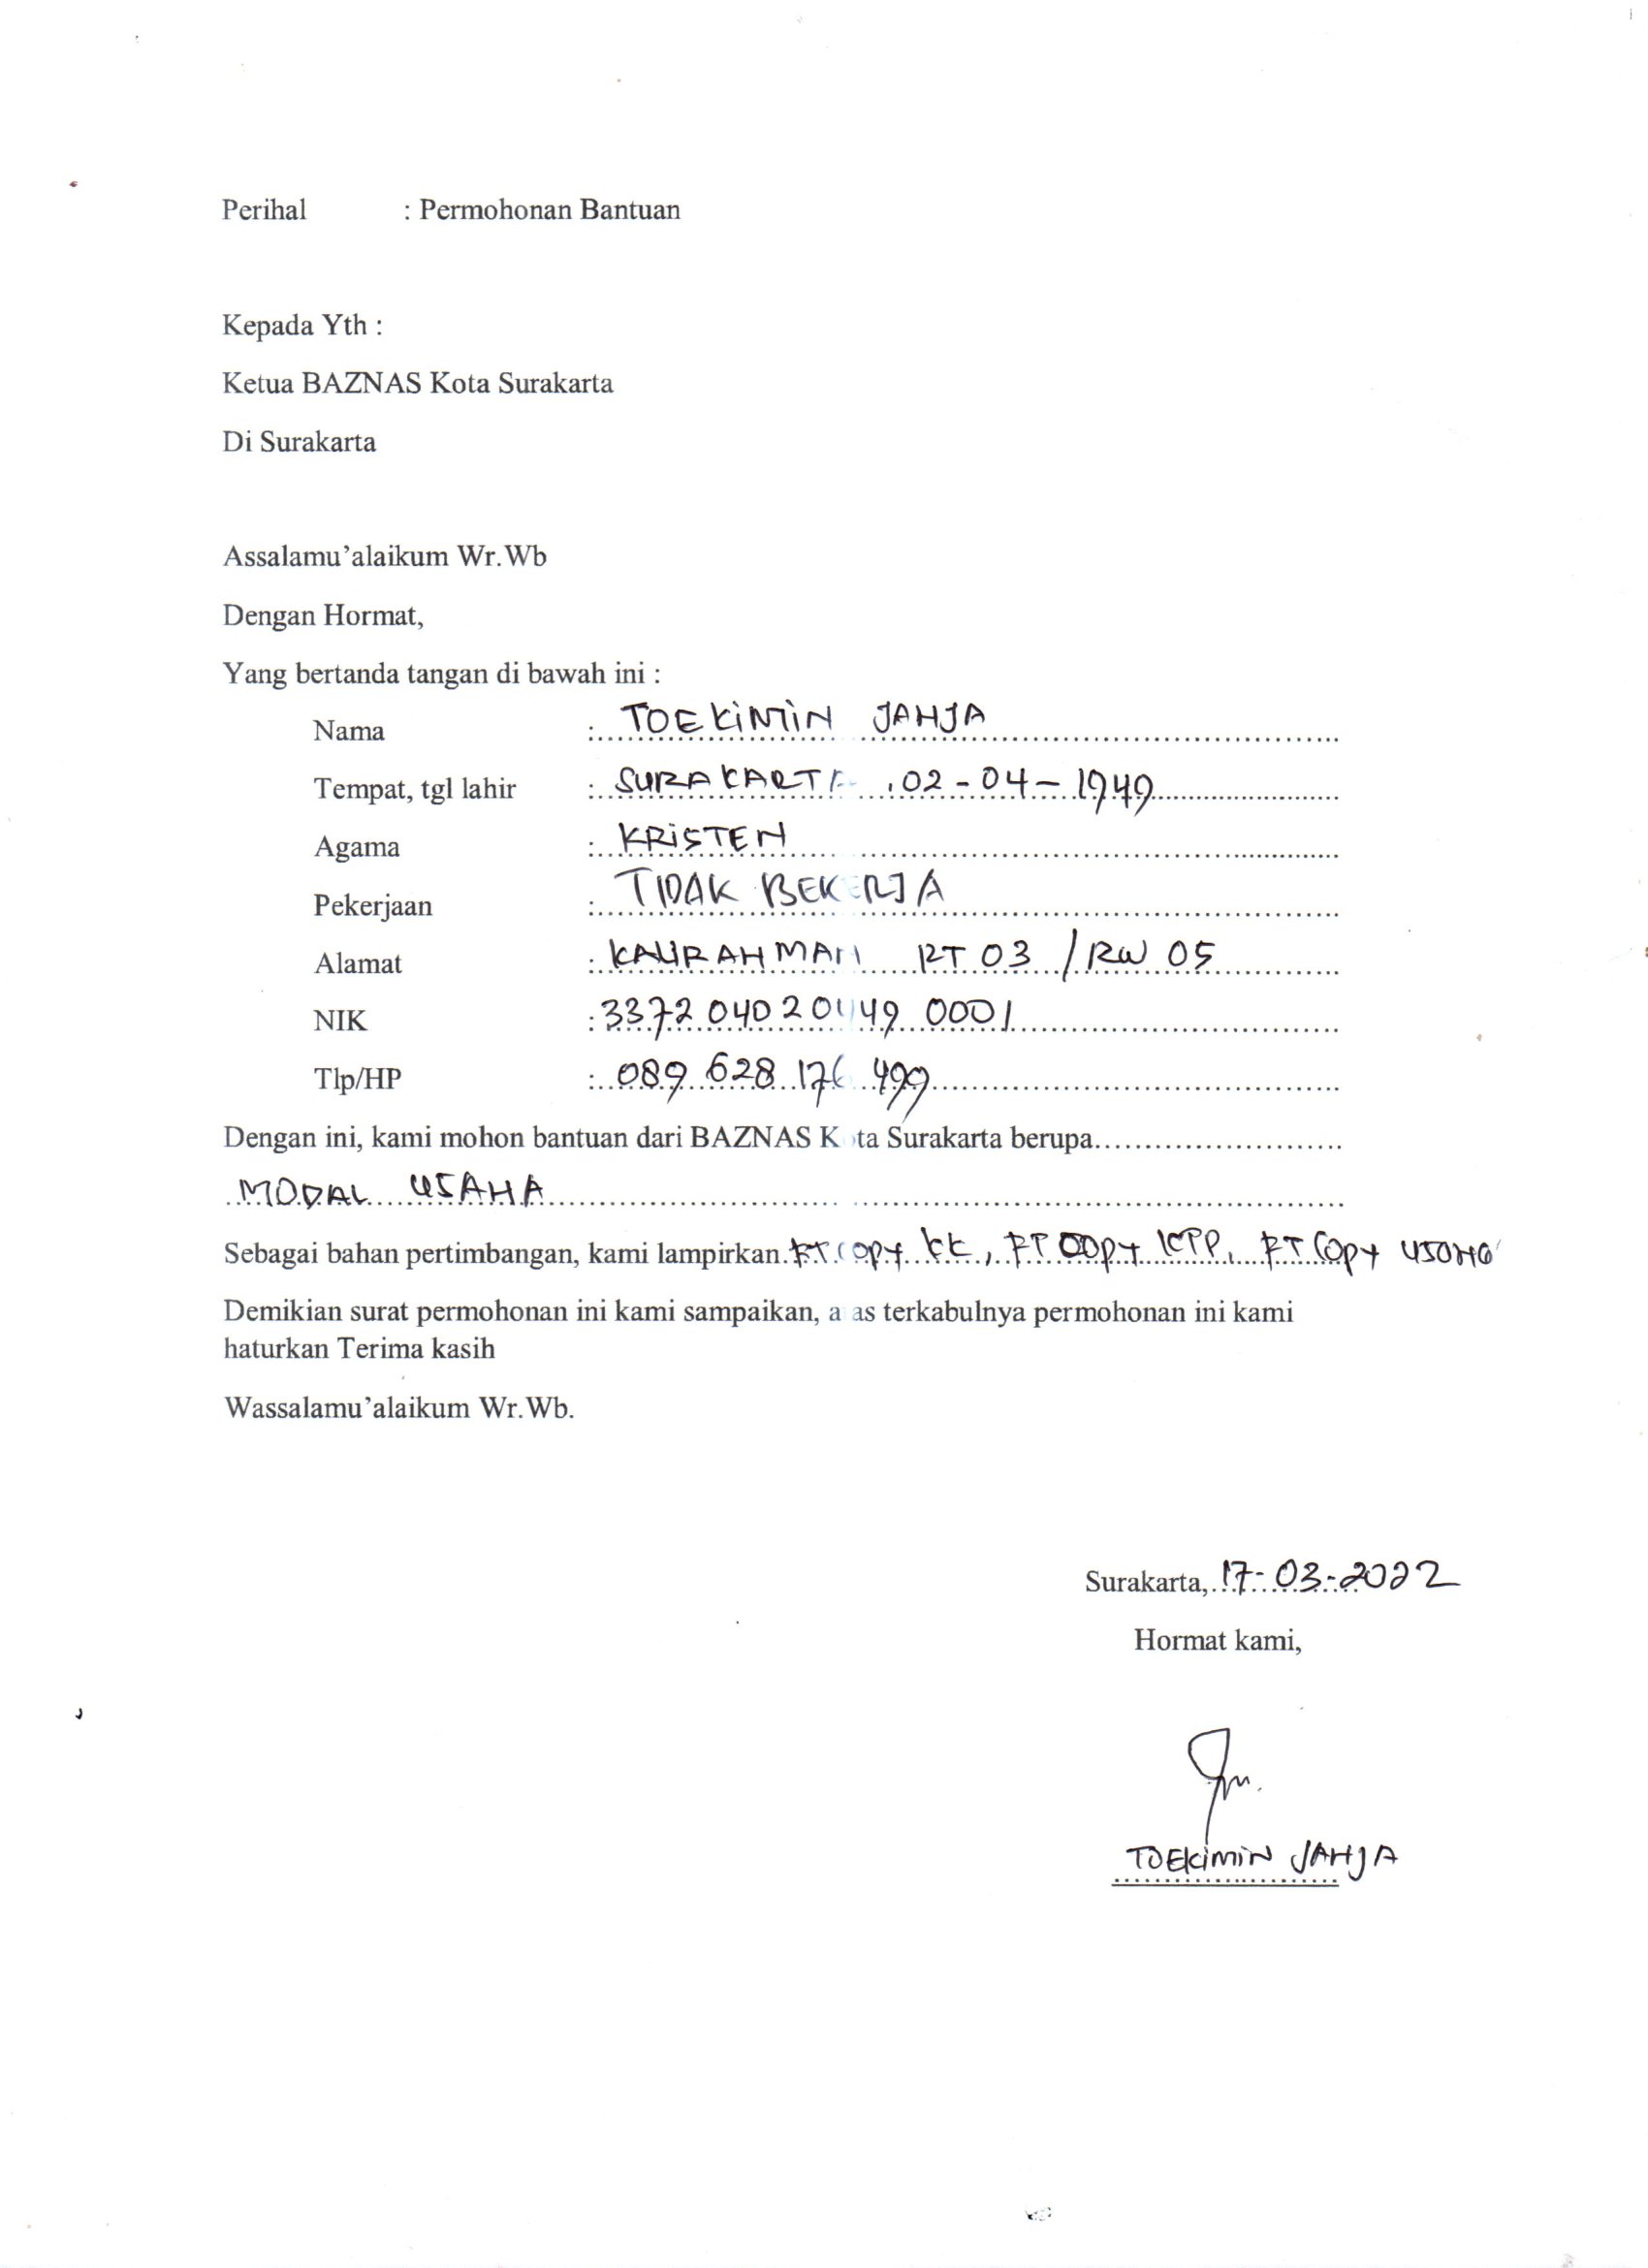 Perihal : Permohonan Bantuan
Kepada Yth :
Ketua BAZNAS Kota Surakarta
Di Surakarta
Assalamu'alaikum Wr.Wb
Dengan Hormat,
Yang bertanda tangan di bawah ini :
Nama : TOEKIMIN JAHJA
Tempat, tgl lahir : SURAKARTA , 02-04-1949
Agama : KRISTEN
Pekerjaan : TIDAK BEKERJA
Alamat : KAURAHMAN RT 03 / RW 05
NIK : 3372 0402 0449 0001
Tlp/HP : 089 628 176 499
Dengan ini, kami mohon bantuan dari BAZNAS Kota Surakarta berupa
MODAL USAHA
Sebagai bahan pertimbangan, kami lampirkan FT Copy KK, FT Copy KTP, FT Copy
Demikian surat permohonan ini kami sampaikan, atas terkabulnya permohonan ini kami
haturkan Terima kasih
Wassalamu'alaikum Wr.Wb.
Surakarta, 17-03-2022
Hormat kami,
TOEKIMIN JAHJA